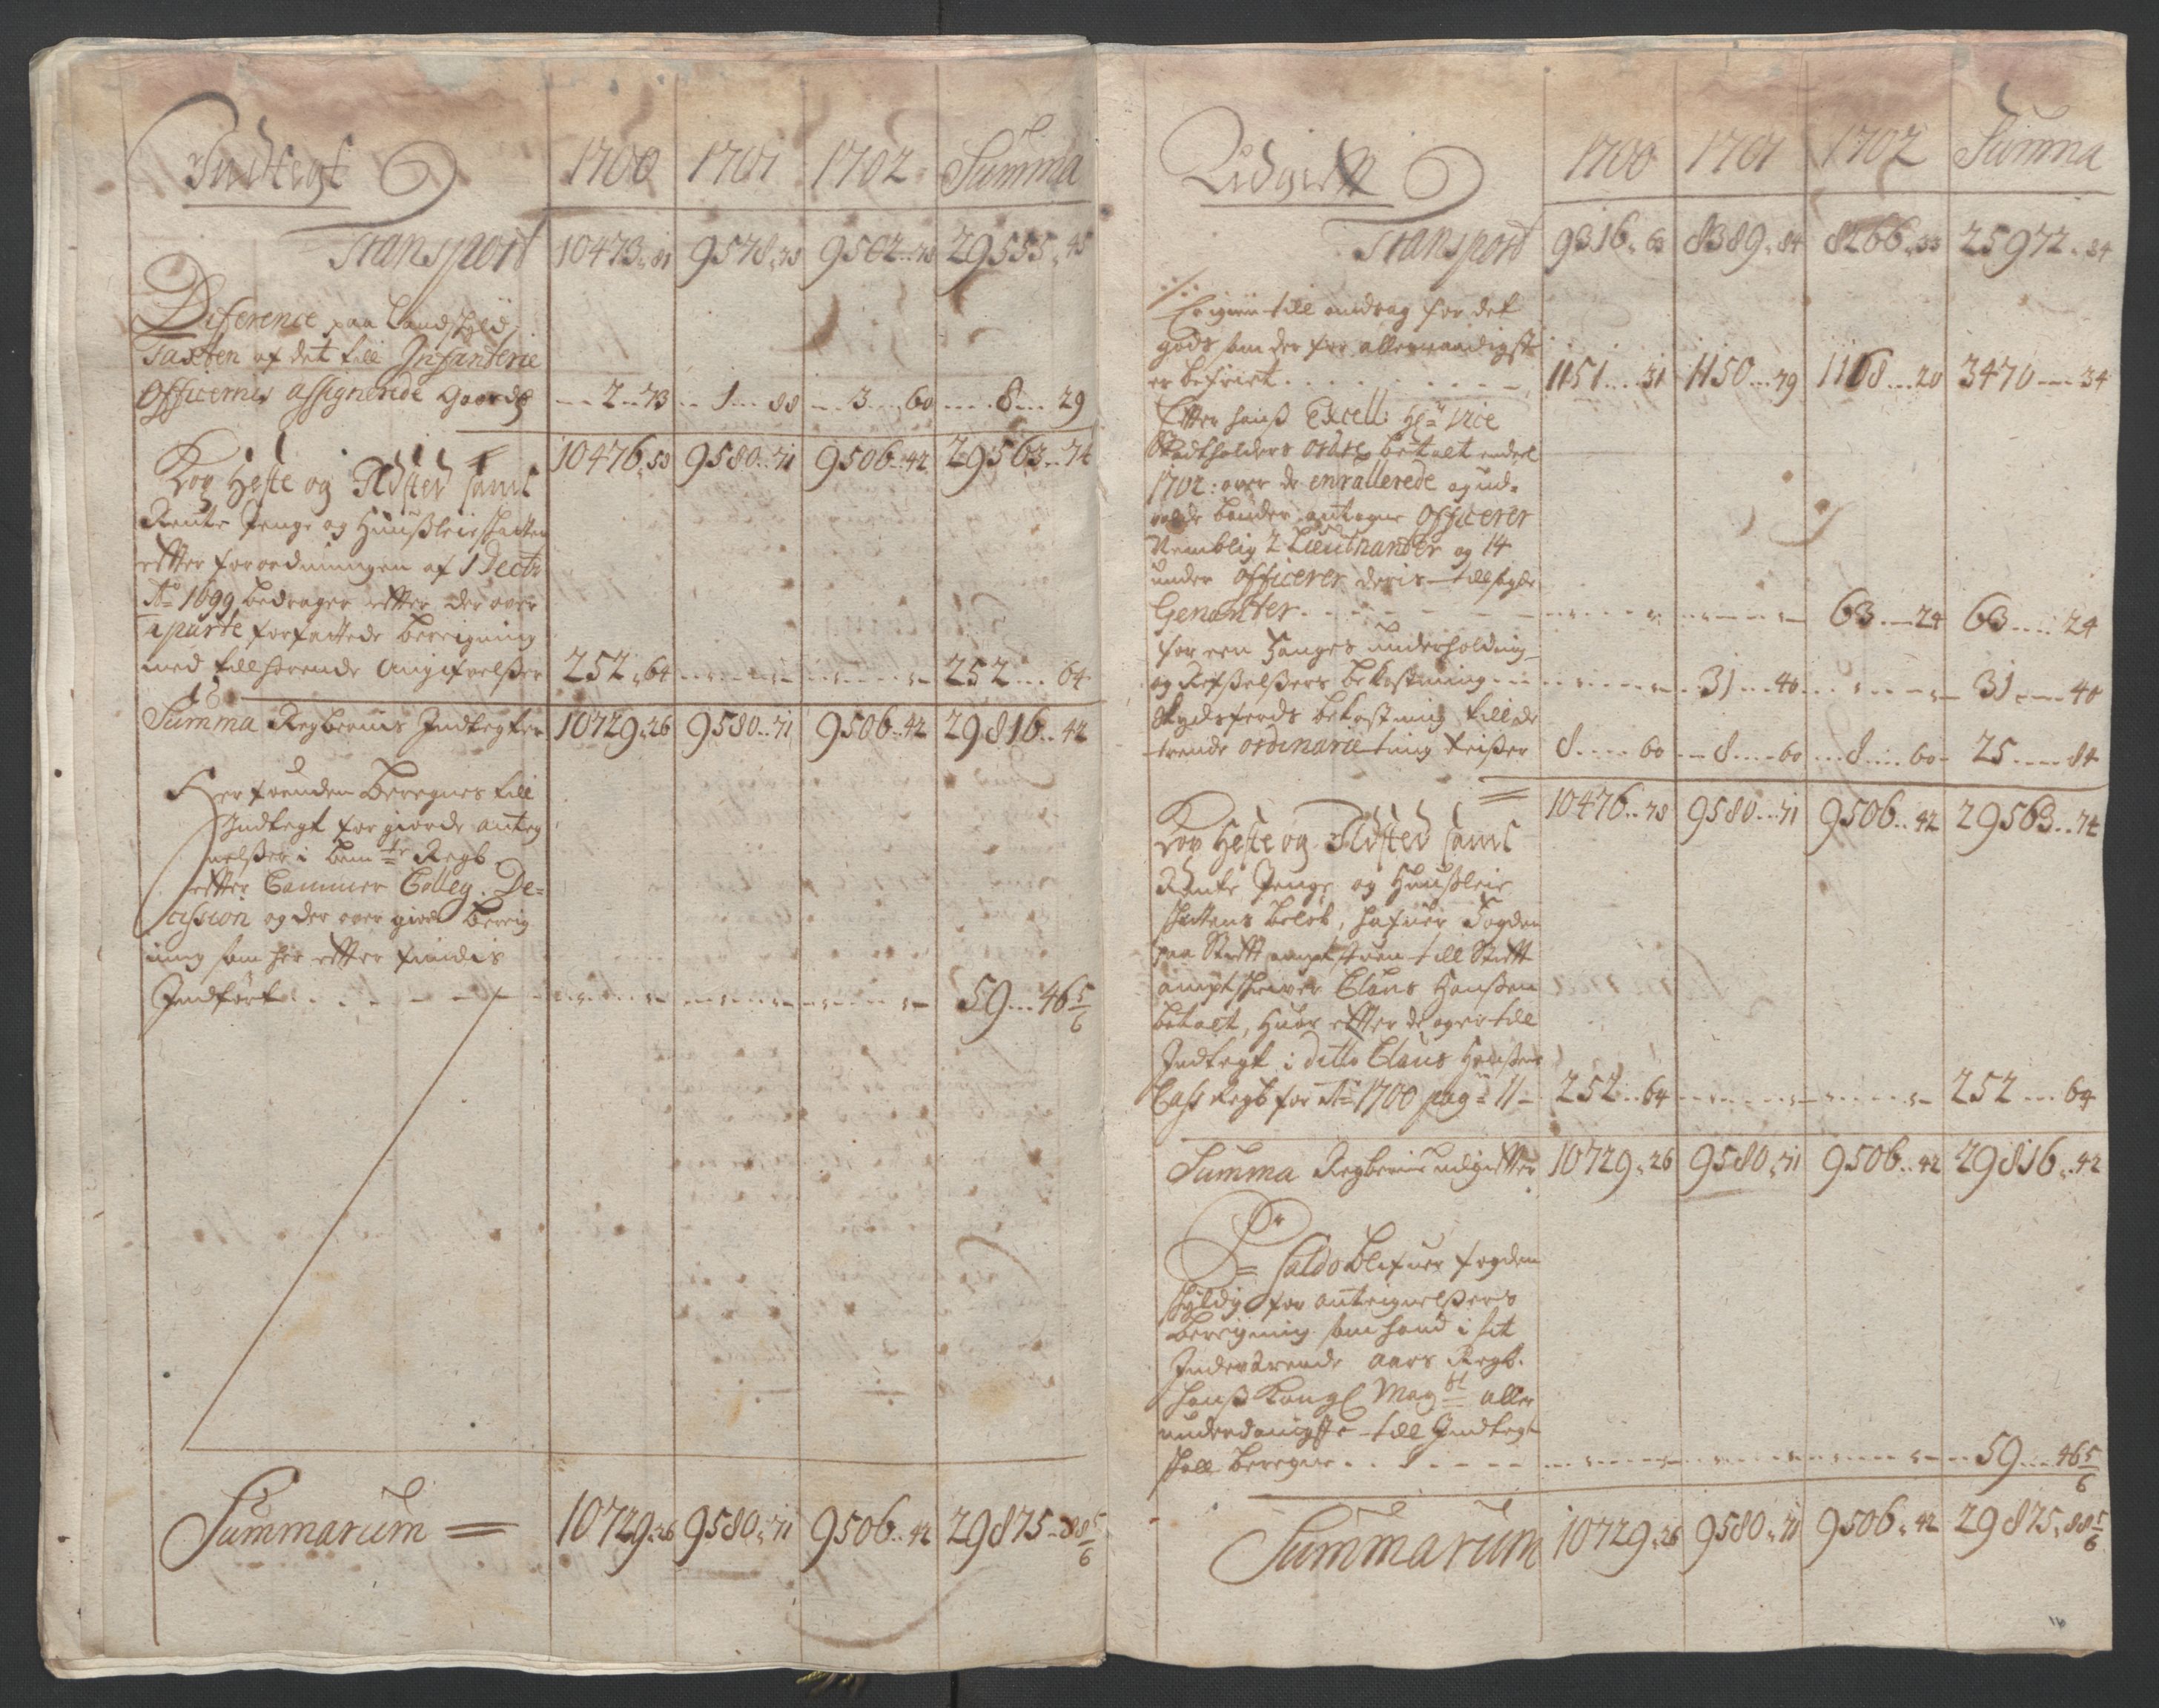 Indtegt 1700 1701 1702 Summa
Transport 10473. 81 9578. 78 9502. 78 29555. 45
Difference paa Landskyld
Taxten af det till Infanterie
Officernes assignerede Gaarde 2. 73 1. 88 3. 60 8. 29
10476. 58 9580. 71 9506. 42 29563. 74
Kop Heste og Ildsted samt
Rente Penge og Huusleie skatten
efter forordningen af 1 Decbr
Ao 1699, bedrager efter der over
aparte forfattede beregning
med tillhørende Angifvelser 252. 64 252. 64
Summa Regbernis Indtegter 10729. 26 9580. 71 9506. 42 29816. 42
Her foruden Beregnes till
Indtegt for giorde anteg
nelser i bem.te Regb.
efter Cammer Colleg. De=
cission og der over giort bereg
ning som her efter findis
Indført 59. 46 5/6
Summarum 10729. 26 9580. 71 9506. 42 29875. 88 5/6

Udgift 1700 1701 1702 Summa
Transport 9316. 63 8389. 84 8266. 33 25972. 84
till andrag for det
gods som der for allernaadigst
er befriet 1151. 31 1150. 79 1168. 20 3470. 34
Efter hans Excell: Hr Vice
Stadtholders ordre betalt
1702: over de enrollerede og ud=
valde bønder antagne Officerer
Nemblig 2 Lieutnanter og 14
under Officerer deris tillagde
Genanter 63. 24 63. 24
for een Fanges underholdning
og Refselsers bekostning 31. 40 31. 40
Skydsferds bekostning till de
trende ordinarie ting reiser 8. 60 8. 60 8. 60 25. 84
10476. 78 9580. 71 9506. 42 29563. 74
Kop Heste og Ildsted samt
Rente Penge og Huusleie
skattens beløb, hafuer Fogden
paa Stift ampt stuen till Stift
amptskriver Claus Hansen
betalt, huor efter de og er till
Indtegt i ditto Claus Hansens
Cass Regb for Ao 1700 pag= 11 252. 64 252. 64
Summa Regbernis udgifter 10729. 26 9580. 71 9506. 42 29816. 42
Pr Saldo blifuer fogden
skyldig for antegnelsers
beregning som hand i sit
Indeværende aars Regb.
hans Kongl Mayst aller
underdanigste till Indtegt
skall beregne 59. 46 5/6
Summarum 10729. 26 9580. 71 9506. 42 29875. 88 5/6